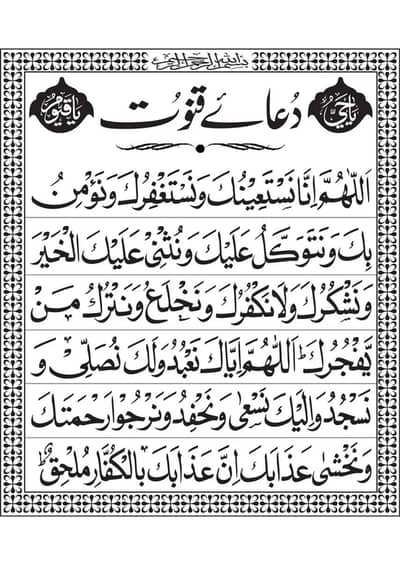 بسم الله الرحمن الرحيم
یاحيُّ
دُعائے قنوُت
یاقیومُ
اَللّٰهُمَّ اِنَّا نَسْتَعِيْنُكَ وَنَسْتَغْفِرُكَ وَنُؤْمِنُ
بِكَ وَنَتَوَكَّلُ عَلَيْكَ وَنُثْنِیْ عَلَيْكَ الْخَيْرَ
وَنَشْكُرُكَ وَلَا نَكْفُرُكَ وَنَخْلَعُ وَنَتْرُكُ مَنْ
يَّفْجُرُكَ ؕ اَللّٰهُمَّ اِيَّاكَ نَعْبُدُ وَلَكَ نُصَلِّیْ وَ
نَسْجُدُ وَاِلَيْكَ نَسْعٰی وَنَحْفِدُ وَنَرْجُوْا رَحْمَتَكَ
وَنَخْشٰی عَذَابَكَ اِنَّ عَذَابَكَ بِالْكُفَّارِ مُلْحِقٌ ؕ